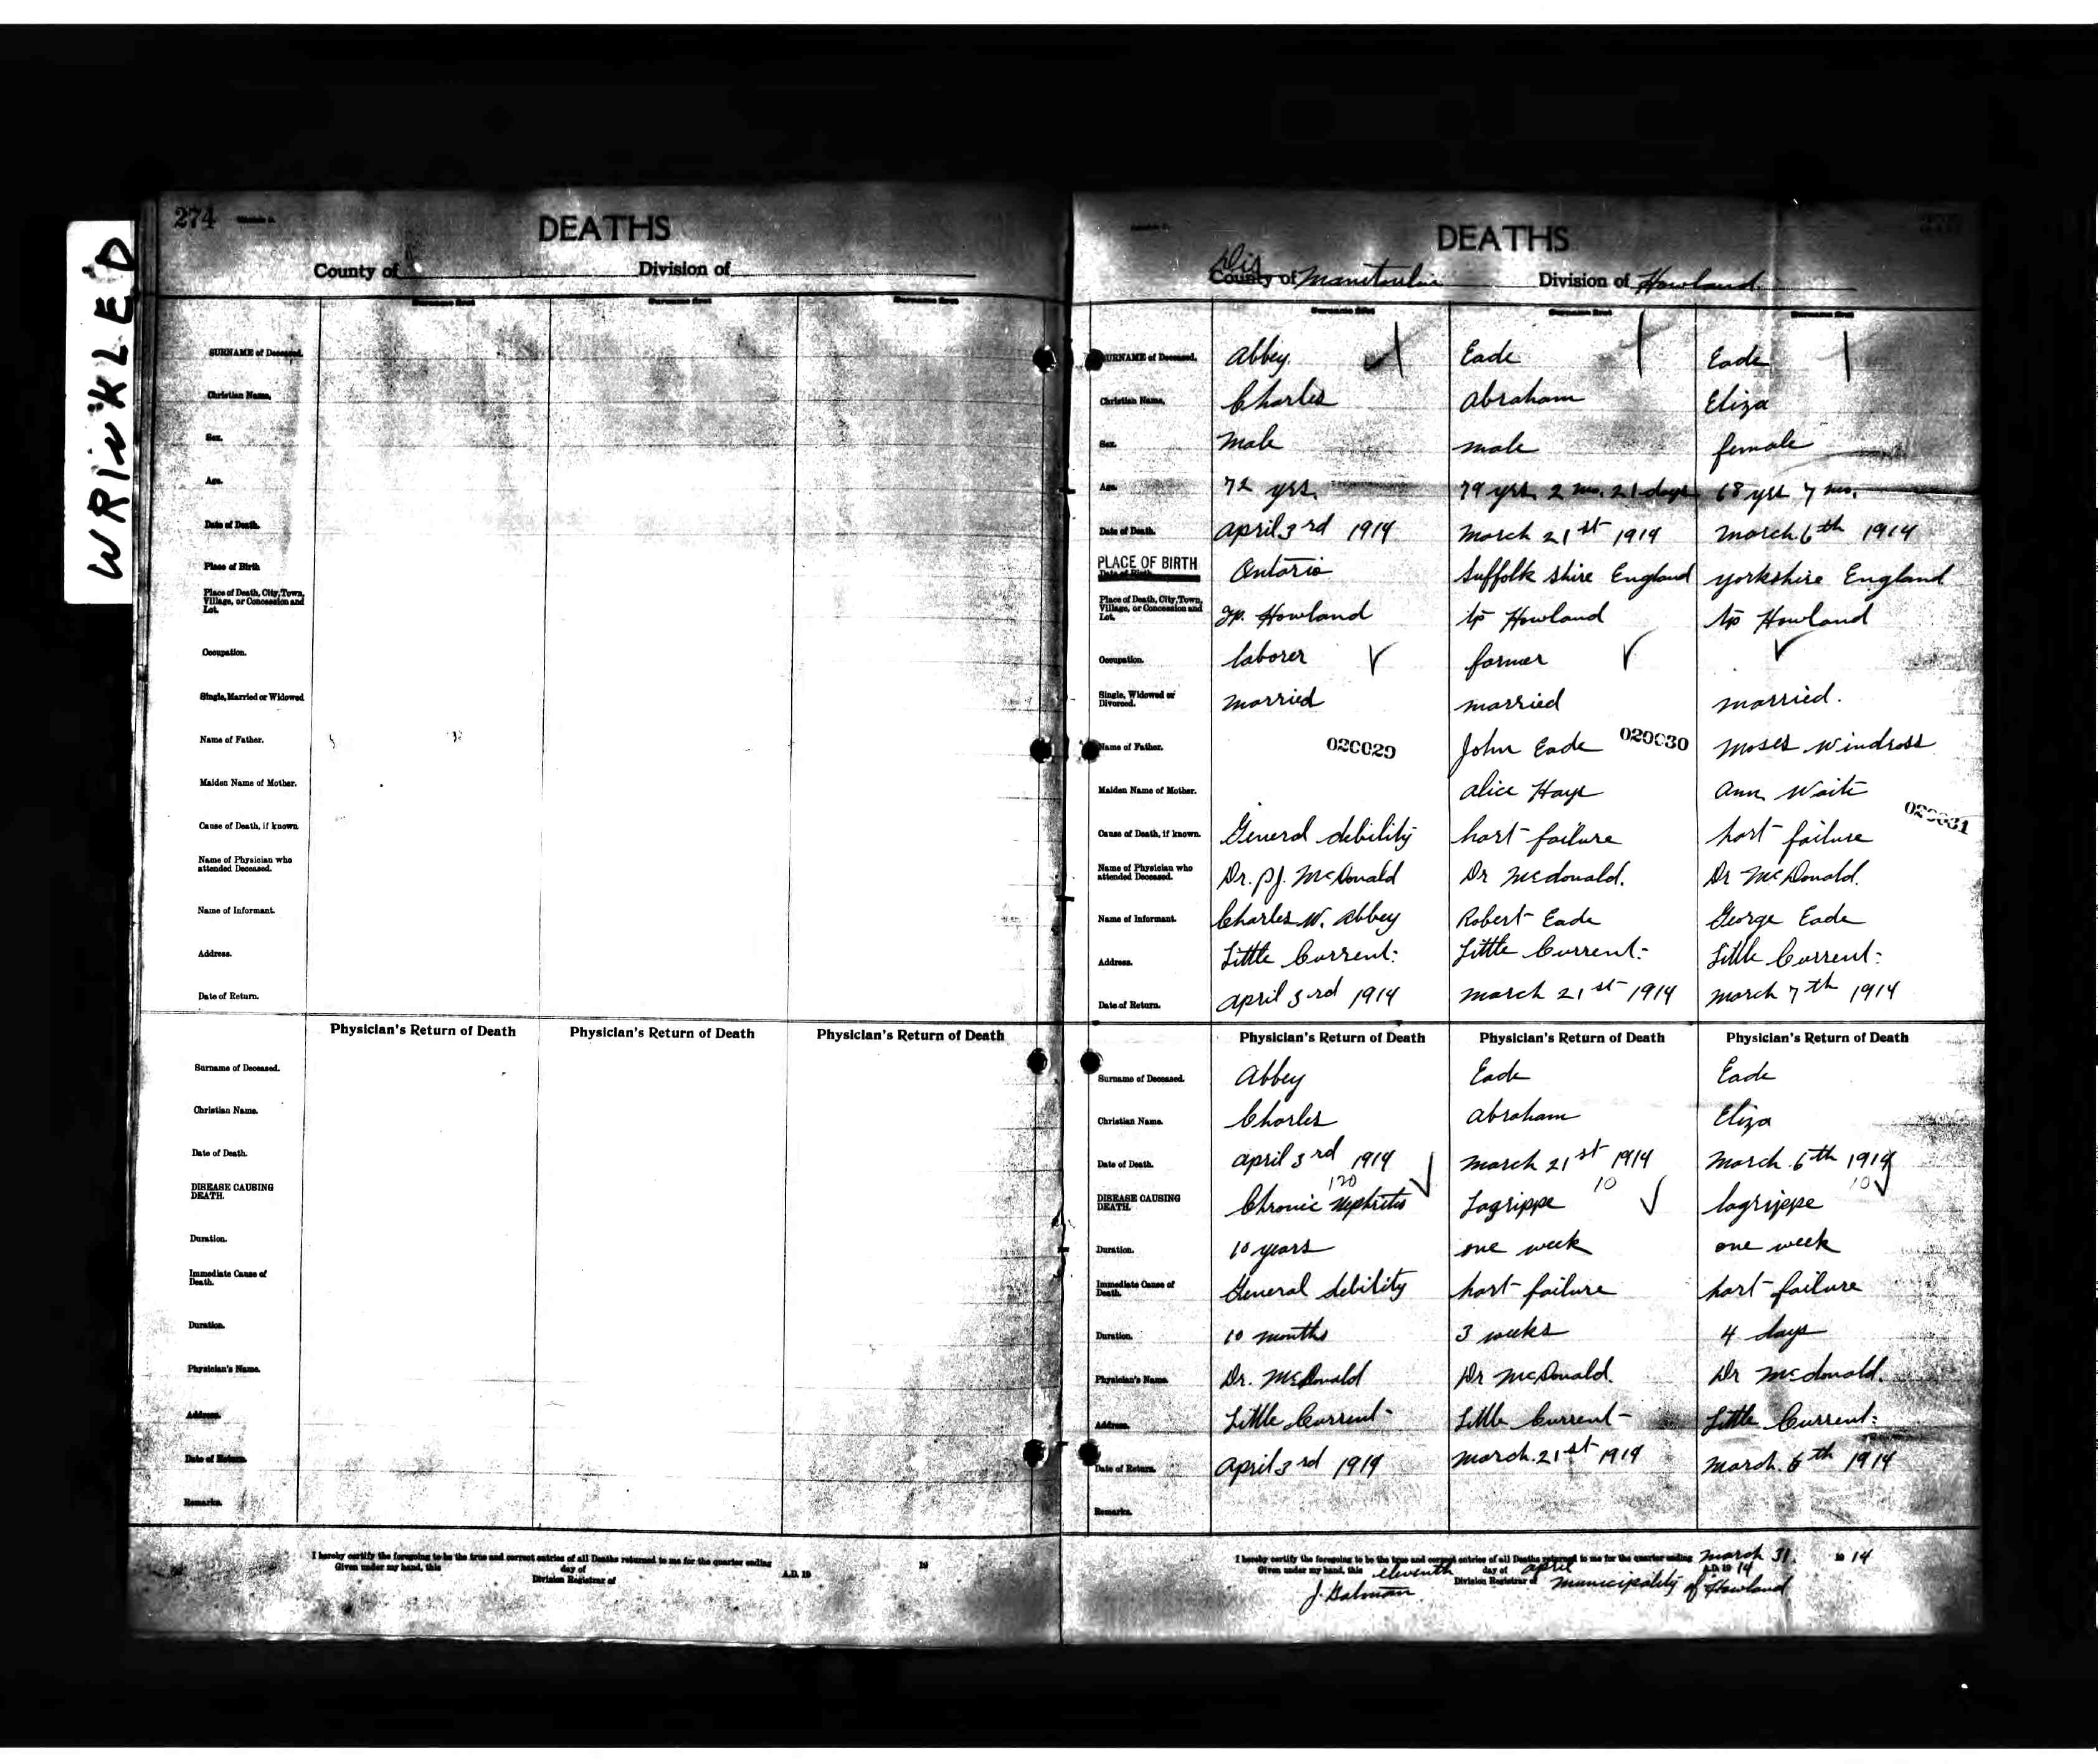 WRiNKLED
274
DEATHS
County of
Division of
Surname first
Surname first
Surname first
SURNAME of Deceased.
Christian Name.
Sex.
Age.
Date of Death.
Place of Birth
Place of Death, City, Town,
Village, or Concession and
Lot.
Occupation.
Single, Married or Widowed
Name of Father.
Maiden Name of Mother.
Cause of Death, if known
Name of Physician who
attended Deceased.
Name of Informant.
Address.
Date of Return.
Physician's Return of Death
Physician's Return of Death
Physician's Return of Death
Surname of Deceased.
Christian Name.
Date of Death.
DISEASE CAUSING
DEATH.
Duration.
Immediate Cause of
Death.
Duration.
Physician's Name.
Address.
Date of Return.
Remarks.
I hereby certify the foregoing to be the true and correct entries of all Deaths returned to me for the quarter ending 19
Given under my hand, this day of A.D. 19
Division Registrar of
DEATHS
Dis
County of Manitoulin Division of Howland
Surname first
Surname first
Surname first
SURNAME of Deceased. Abbey Eade Eade
Christian Name. Charles Abraham Eliza
Sex. Male male female
Age. 72 yrs. 79 yrs. 2 mo. 21 days 68 yrs 7 mo.
Date of Death. April 3rd 1914 March 21st 1914 March 6th 1914
PLACE OF BIRTH Ontario Suffolk shire England yorkshire England
Place of Death, City, Town,
Village, or Concession and
Lot. Tp. Howland tp Howland tp Howland
Occupation. laborer farmer
Single, Widowed or
Divorced. married married married.
Name of Father. 020029 John Eade 020030 Moses Windross
Maiden Name of Mother. Alice Hays Ann Waite
020031
Cause of Death, if known. General debility hart failure hart failure
Name of Physician who
attended Deceased. Dr. P.J. McDonald Dr Mcdonald. Dr McDonald.
Name of Informant. Charles W. Abbey Robert Eade George Eade
Address. Little Current. Little Current. Little Current.
Date of Return. April 3rd 1914 March 21st 1914 March 7th 1914
Physician's Return of Death Physician's Return of Death Physician's Return of Death
Surname of Deceased. Abbey Eade Eade
Christian Name. Charles Abraham Eliza
Date of Death. April 3rd 1914 March 21st 1914 March 6th 1914
120 10 10
DISEASE CAUSING
DEATH. Chronic Nephritis Lagrippe lagrippe
Duration. 10 years one week one week
Immediate Cause of
Death. General debility hart failure hart failure
Duration. 10 months 3 weeks 4 days
Physician's Name. Dr. McDonald Dr McDonald. Dr Mcdonald.
Address. Little Current Little Current Little Current.
Date of Return. April 3rd 1914 March 21st 1914 March 6th 1914
Remarks.
I hereby certify the foregoing to be the true and correct entries of all Deaths returned to me for the quarter ending March 31. 1914
Given under my hand, this eleventh day of April A.D. 1914
Division Registrar of Municipality of Howland